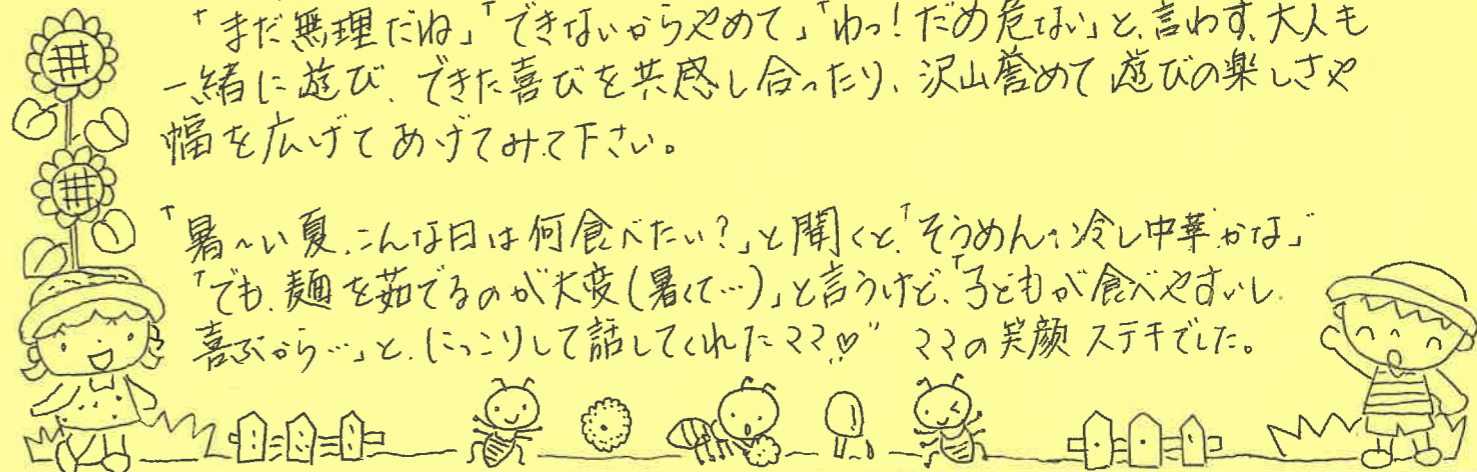 「まだ無理だね」「できないからやめて」「わっ!だめ危ない」と、言わず、大人も
一緒に遊び、できた喜びを共感し合ったり、沢山誉めて遊びの楽しさや
幅を広げてあげてみて下さい。
「暑〜い夏、こんな日は何食べたい?」と聞くと、「そうめんや冷し中華かな」
「でも、麺を茹でるのが大変(暑くて…)」と言うけど、「子どもが食べやすいし
喜ぶから…」と、にっこりして話してくれたママ♡" ママの笑顔ステキでした。